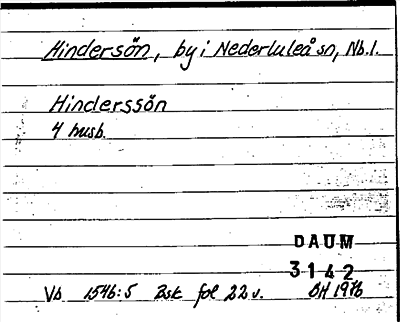 Hindersön, by i Nederluleå sn, Nb.l.
Hinderssön
4 husb.
DAUM
3142
Vb 1546:5 Bsk fol 22 v. BH 1976